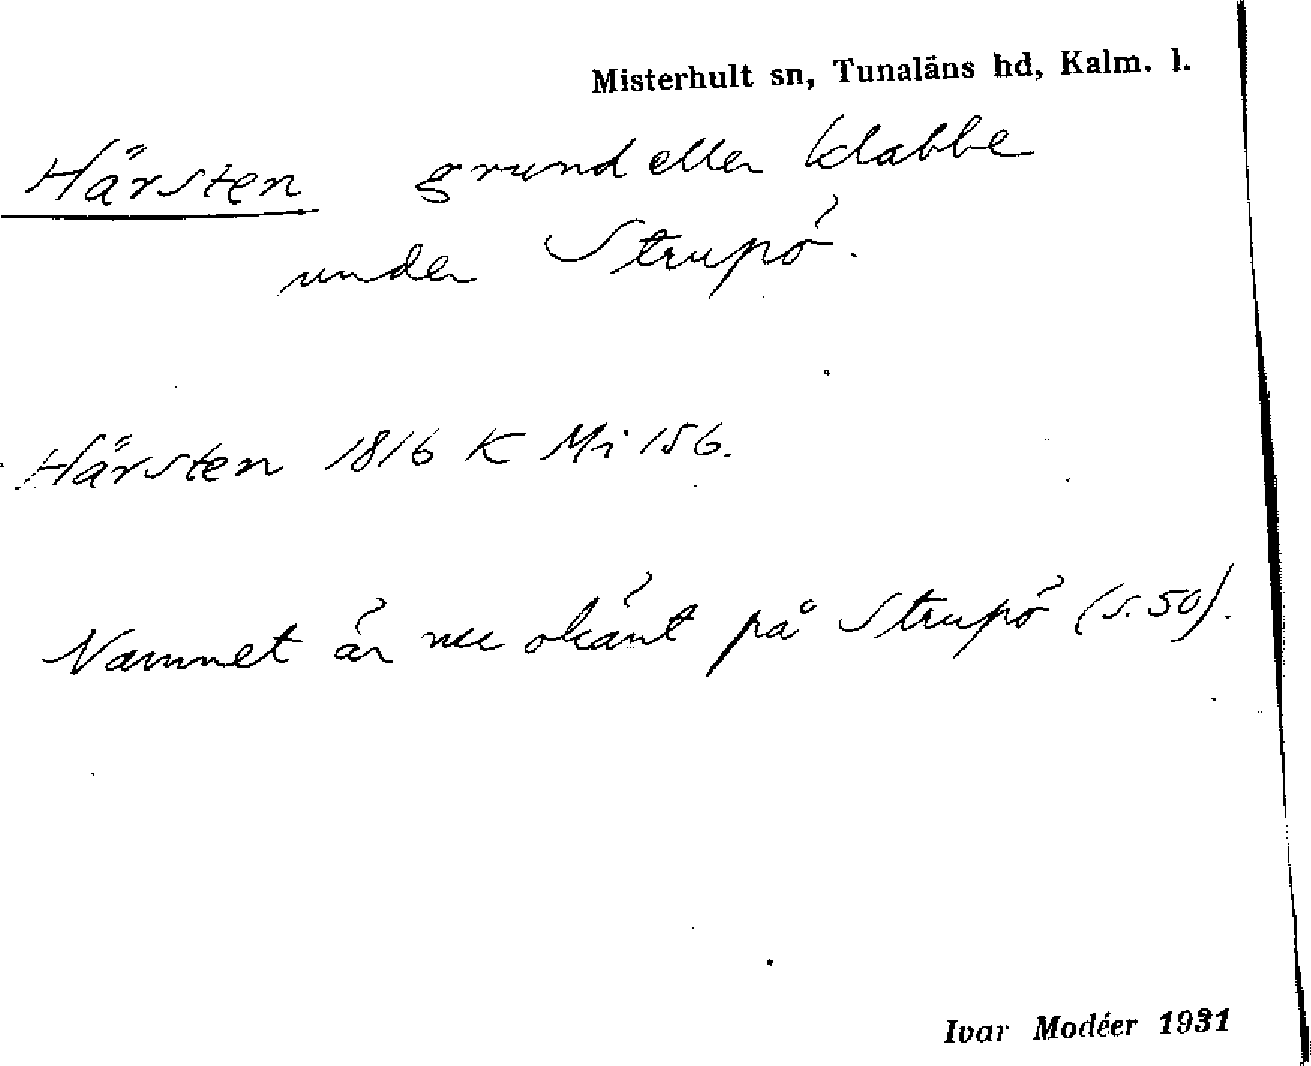 Misterhult sn, Tunaläns hd, Kalm. l.
Härsten grund eller klabbe
under Strupö.
Härsten 1816 K Mi 156.
Namnet är nu okänt på Strupö (s. 50).
Ivar Modéer 1931